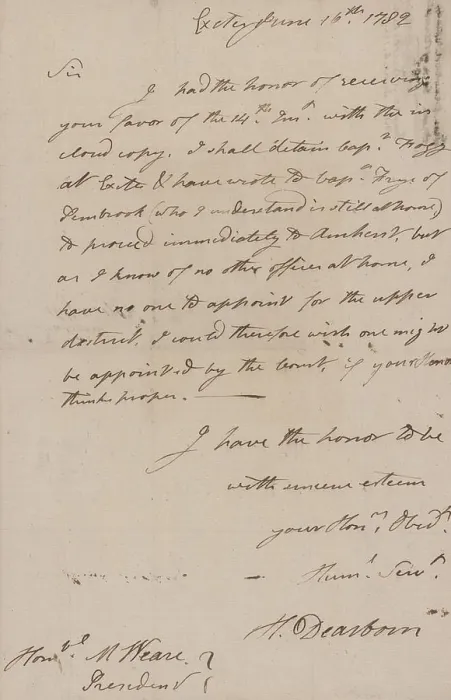 Exeter June 16th. 1782
Sir
I had the honor of receiving
your favor of the 14th. Inst. with the in
closd copy. I shall detain Capn. Fogg
at Exeter & have wrote to Capn. Frye of
Pembrook (who I understand is still at home)
to proceed immediately to Amherst, but
as I know of no other officer at home, I
have no one to appoint for the upper
destrict, I could therefore wish one might
be appointed by the Court, if your Honor
thinks proper. —
I have the honor to be
with sincere esteem
your Honrs. Obedt.
Huml. Servt.
H. Dearborn
Honble M Weare }
President